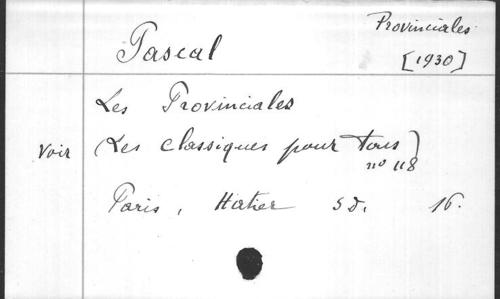 Provinciales
Pascal
[1930]
Les Provinciales
Voir (Les classiques pour tous)
no 118
Paris, Hatier s d. 16.